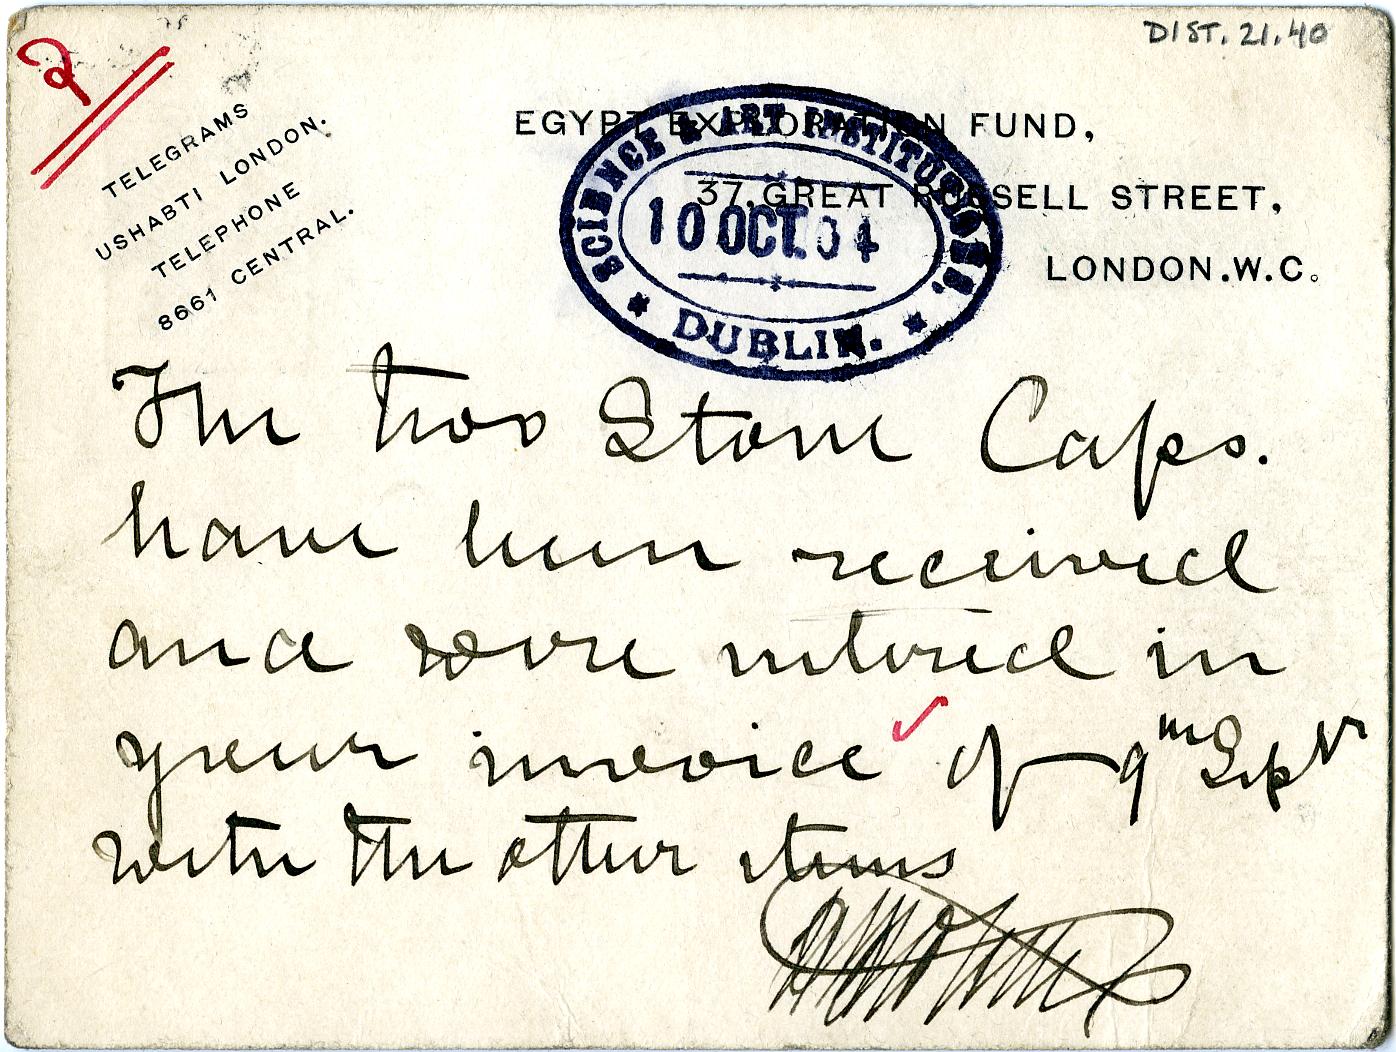 DIST. 21.40
2
TELEGRAMS
USHABTI LONDON.
TELEPHONE
8661 CENTRAL.
EGYPT EXPLORATION FUND,
37, GREAT RUSSELL STREET,
LONDON.W.C.
SCIENCE & ART INSTITUTIONS,
10 OCT. 04
DUBLIN.
The two Stone Caps.
have been received
and were entered in
your invoice of 9th Septr
with the other items